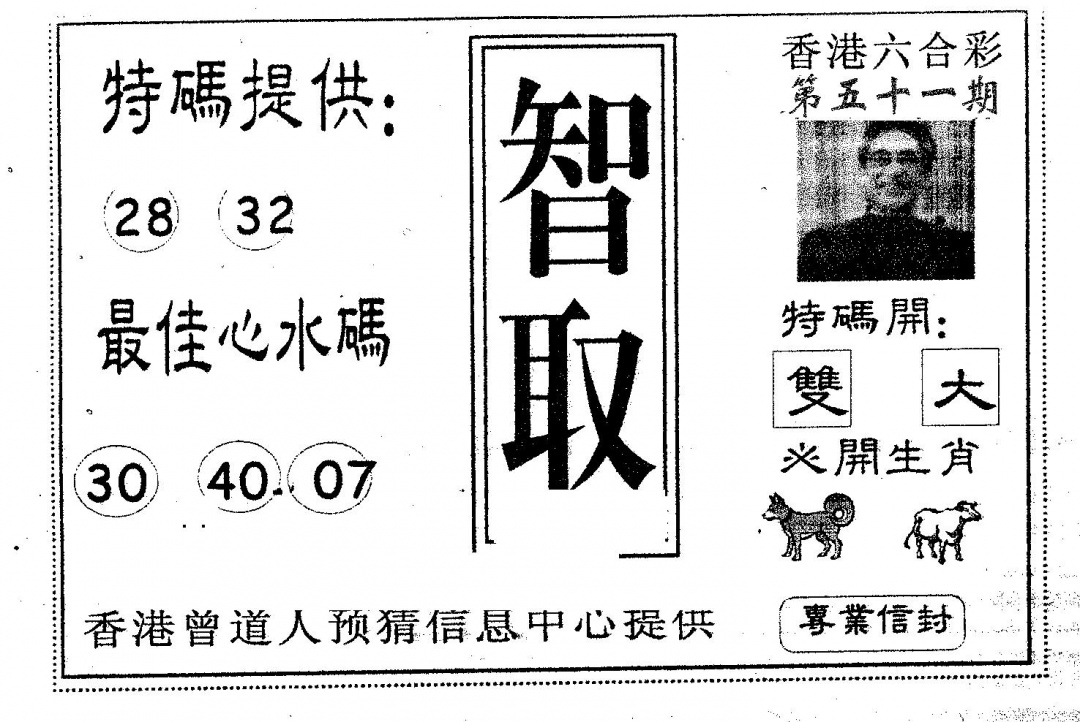 特碼提供：
28 32
最佳心水碼
30 40 07
智取
香港六合彩
第五十一期
特碼開：
雙 大
必開生肖
專業信封
香港曾道人预猜信息中心提供